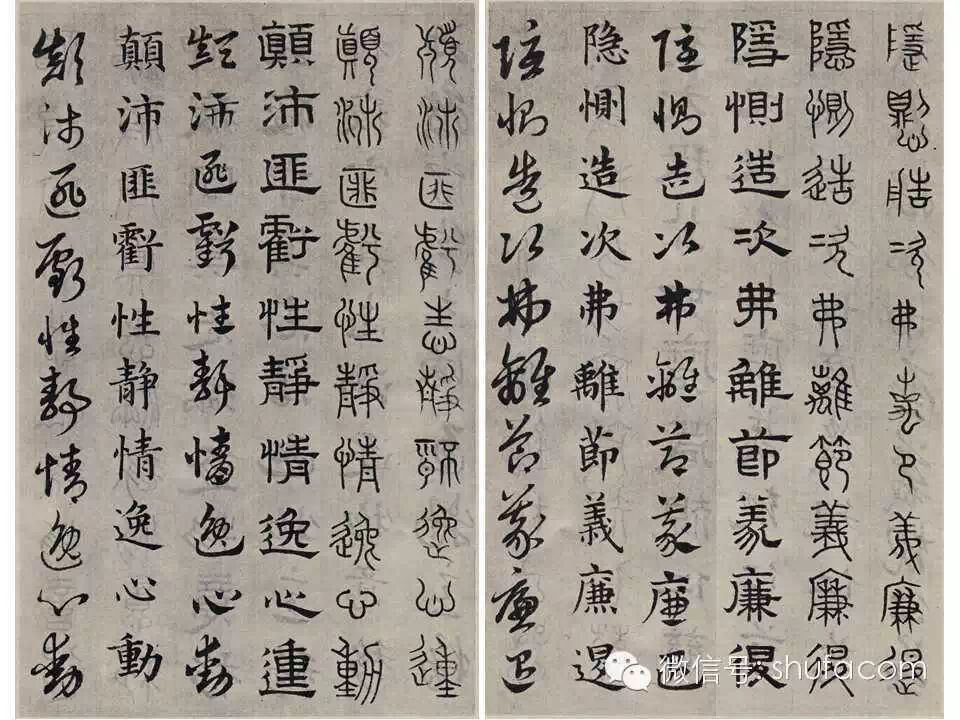 隱惻造次弗離節義廉退
隱惻造次弗離節義廉退
隱惻造次弗離節義廉退
隱惻造次弗離節義廉退
隱惻造次弗離節義廉退
隱惻造次弗離節義廉退
顛沛匪虧性靜情逸心動
顛沛匪虧性靜情逸心動
顛沛匪虧性靜情逸心動
顛沛匪虧性靜情逸心動
顛沛匪虧性靜情逸心動
顛沛匪虧性靜情逸心動
微信号: shufa.com